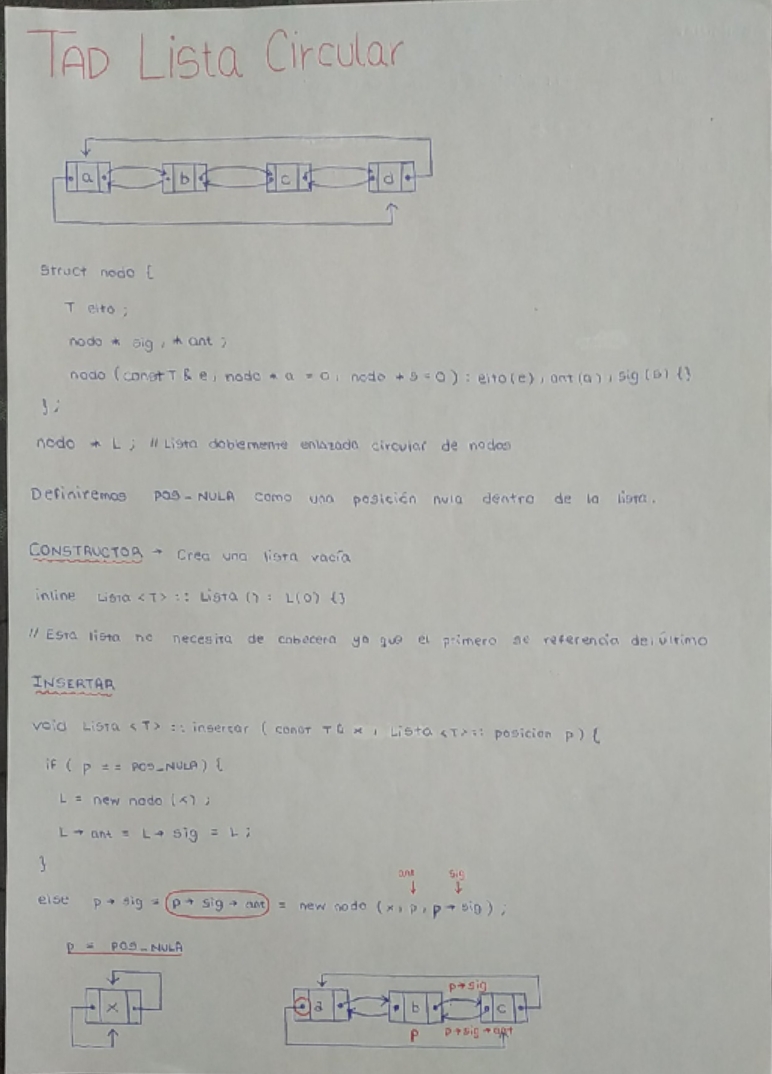 TAD Lista Circular
a b c d
Struct nodo {
T elto ;
nodo * sig , * ant ;
nodo (const T & e, nodo * a = 0, nodo * s = 0) : elto(e), ant(a), sig(s) {}
};
nodo * L ; // Lista doblemente enlazada circular de nodos
Definiremos POS_NULA como una posición nula dentro de la lista.
CONSTRUCTOR → Crea una lista vacía
inline Lista <T> :: Lista () : L(0) {}
// Esta lista no necesita de cabecera ya que el primero se referencia del último
INSERTAR
void Lista <T> :: insertar ( const T& x , Lista <T> :: posicion p) {
if ( p == POS_NULA) {
L = new nodo (x) ;
L → ant = L → sig = L ;
}
ant sig
else p → sig = p → sig → ant = new nodo (x, p, p → sig) ;
p = POS_NULA
p→sig
x a b c
p p→sig→ant